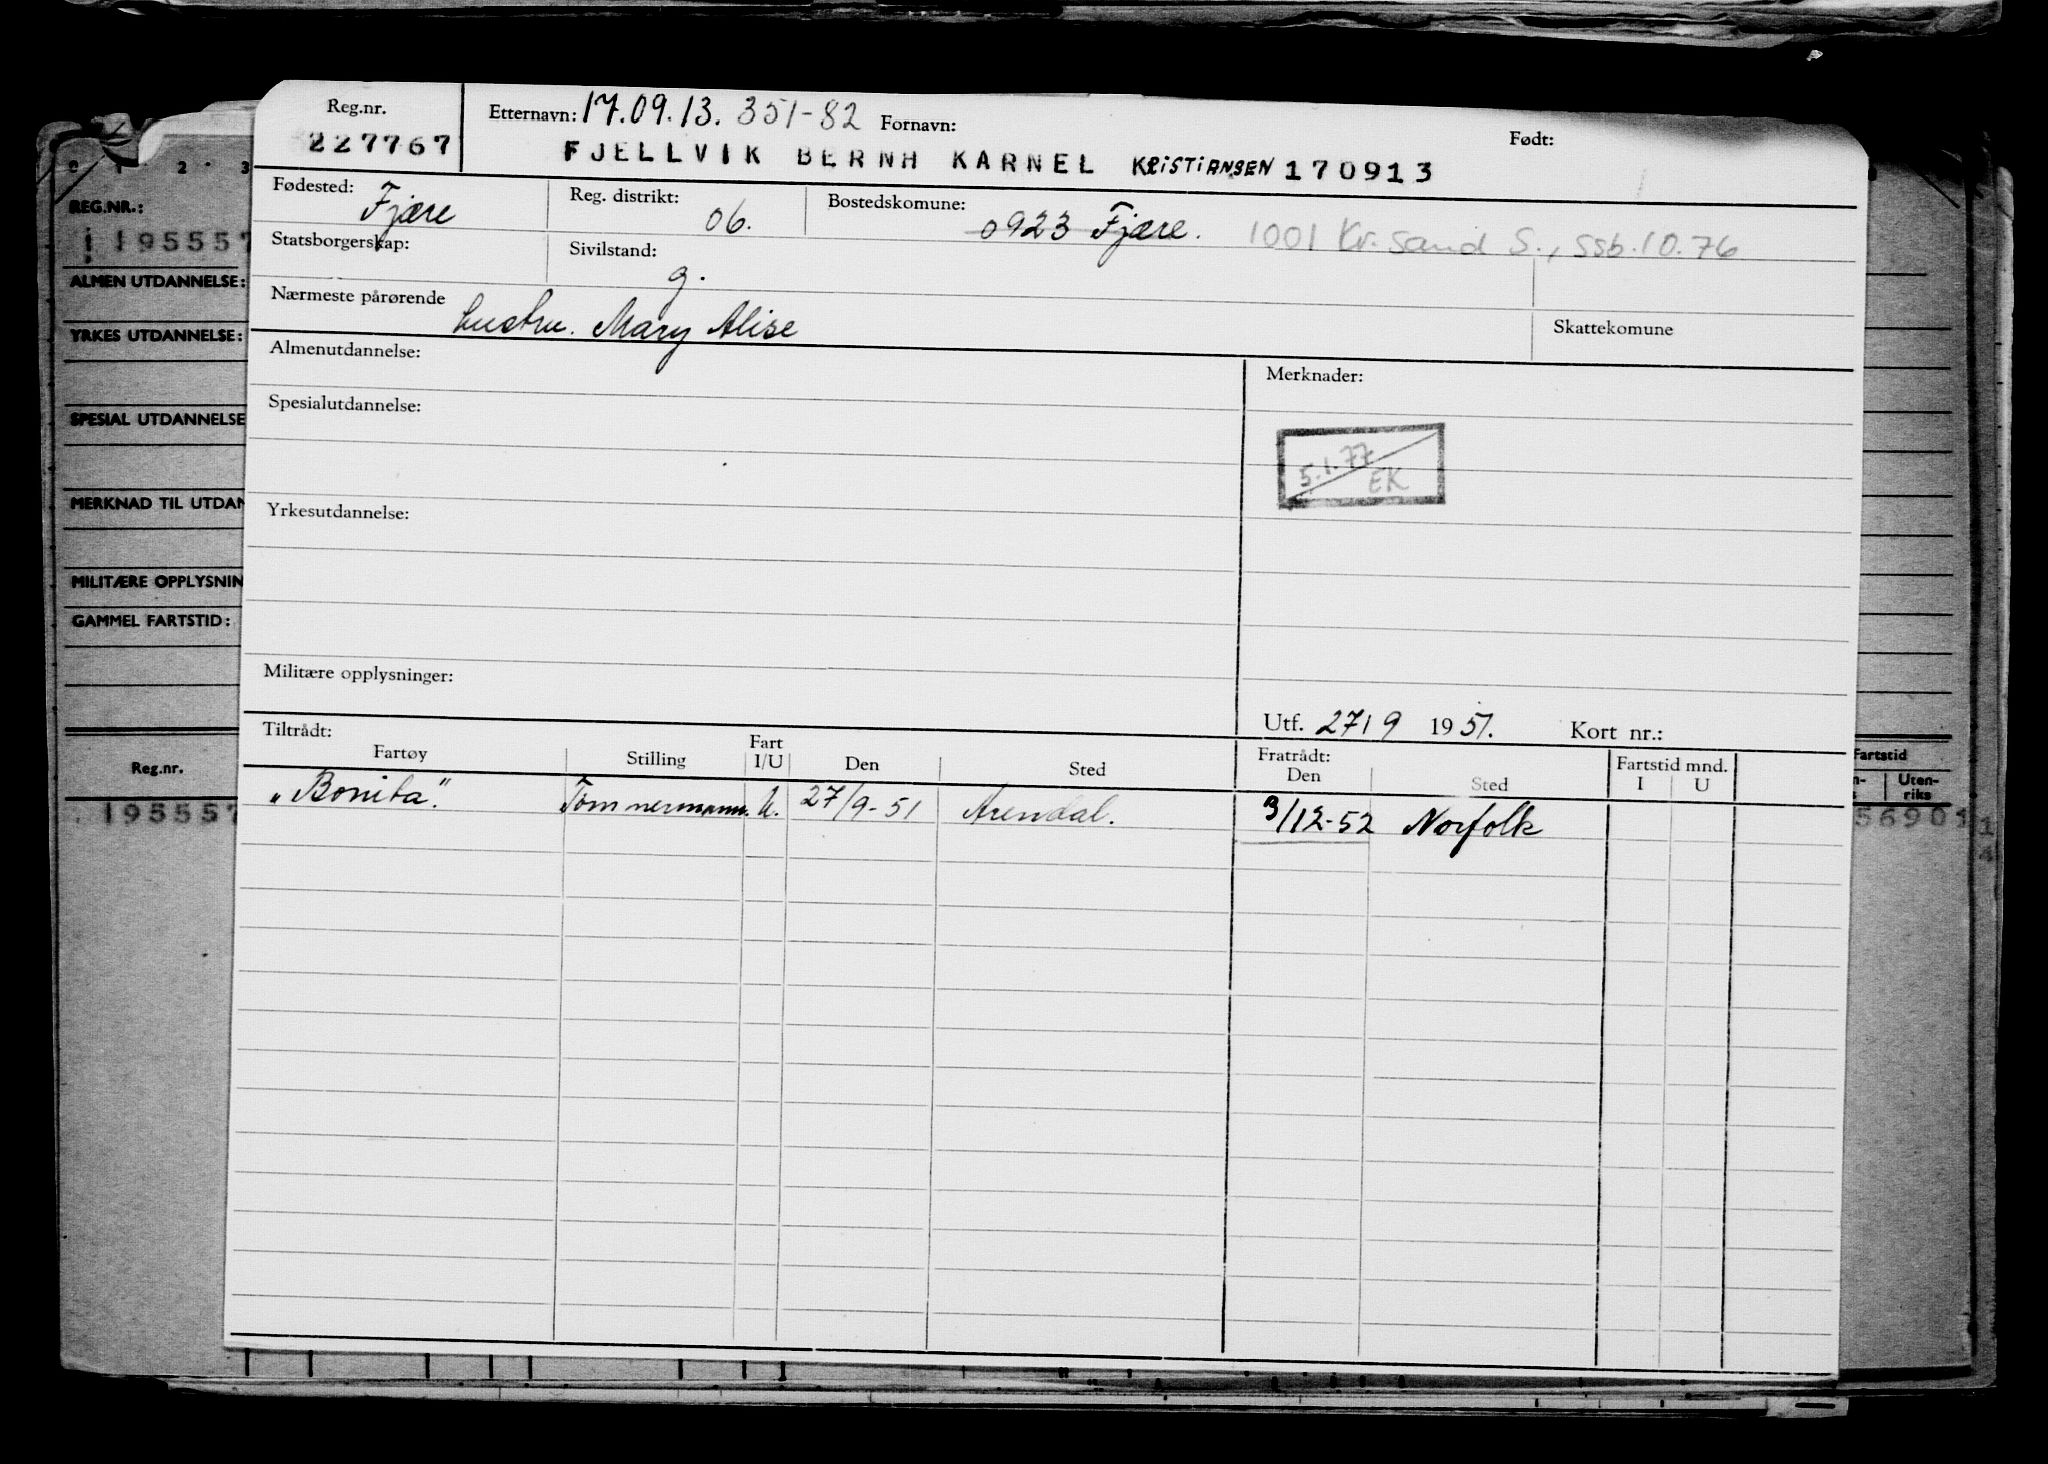 Reg.nr. Etternavn: 17.09.13. 351-82 Fornavn: Født:
227767 FJELLVIK BERNH KARNEL KRISTIANSEN 170913
Fødested: Fjære Reg. distrikt: 06. Bostedskomune: 0923 Fjære. 1001 Kr.sand S., ssb.10.76
Statsborgerskap: Sivilstand: g.
Nærmeste pårørende hustru. Mary Alise Skattekomune
Almenutdannelse: Merknader:
Spesialutdannelse:
5.1.77 EK
Yrkesutdannelse:
Militære opplysninger:
Utf. 27/9 1951. Kort nr.:
Tiltrådt: Fratrådt:
Fartøy Stilling Fart I/U Den Sted Den Sted Fartstid mnd. I U
"Bonita". Tømmermann. U. 27/9-51 Arendal. 3/12-52 Norfolk
0 1 2 3
REG.NR.:
195557
ALMEN UTDANNELSE:
YRKES UTDANNELSE:
SPESIAL UTDANNELSE
MERKNAD TIL UTDAN
MILITÆRE OPPLYSNIN
GAMMEL FARTSTID:
Reg.nr. Fartstid
Uten-
riks
195557 56901